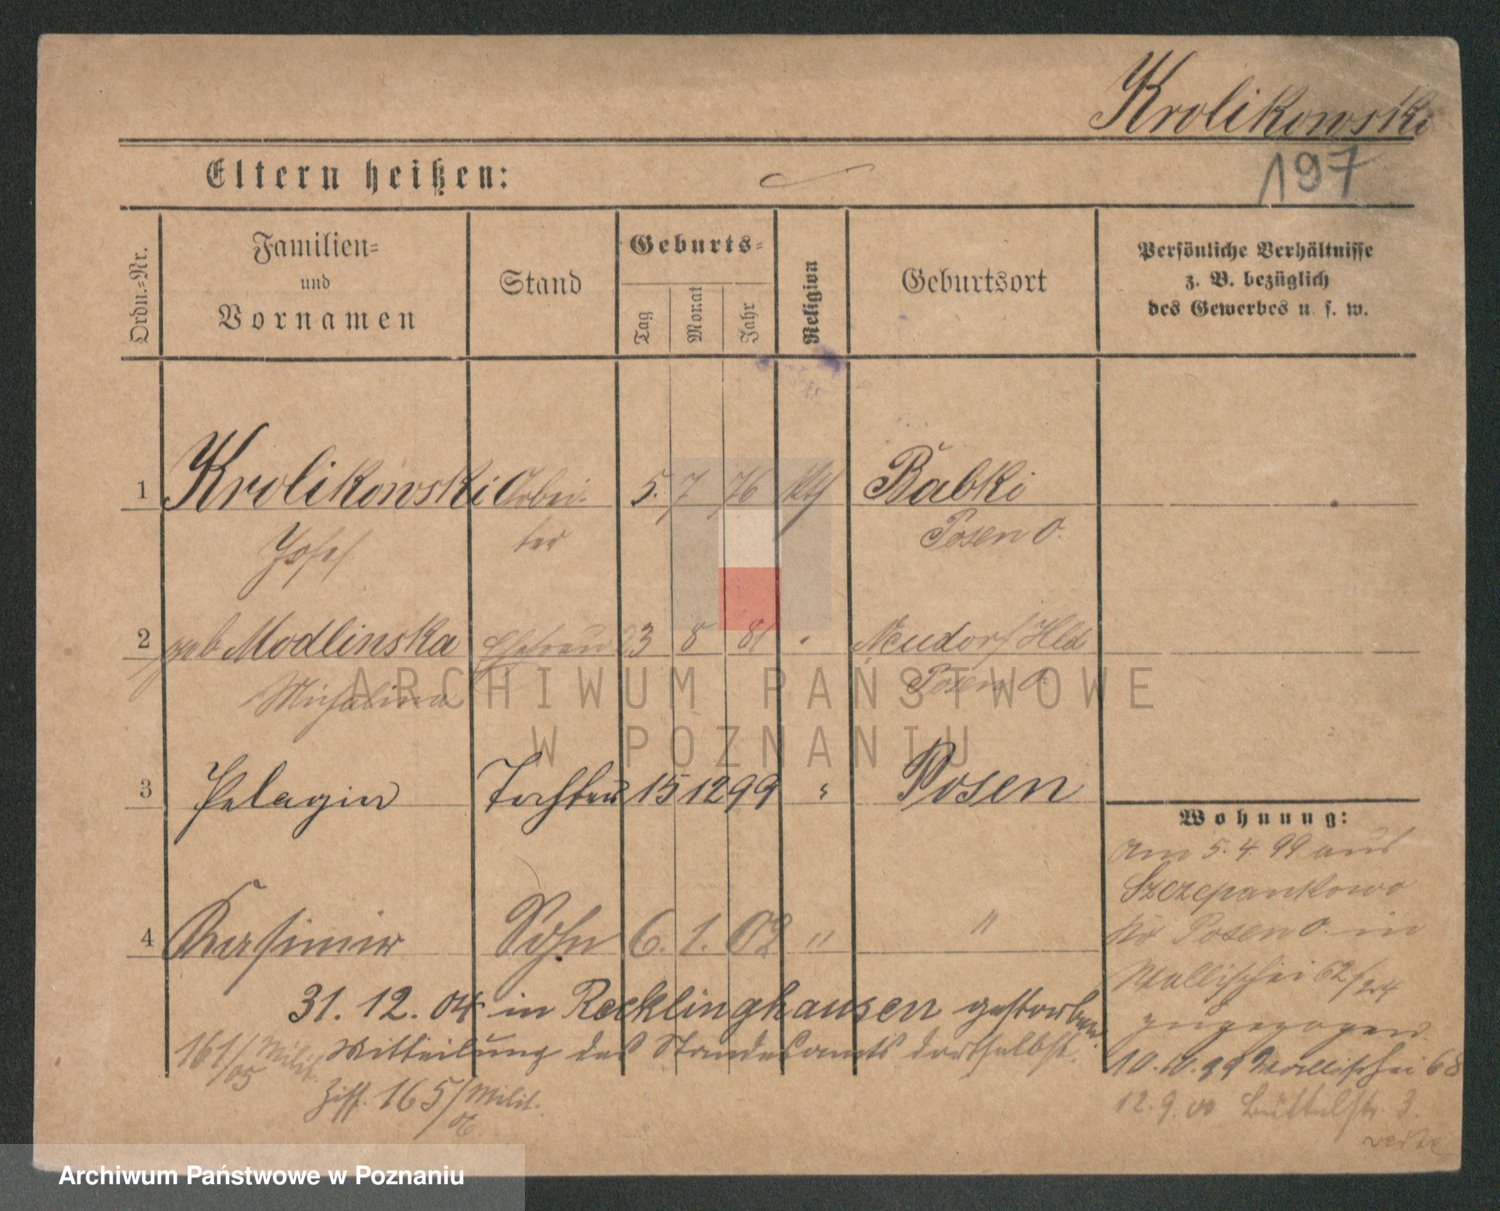 Krolikowski
197
Eltern heißen:
Ordn.-Nr.
Familien-
und
Vornamen
Stand
Geburts-
Tag
Monat
Jahr
Religion
Geburtsort
Persönliche Verhältnisse
z. B. bezüglich
des Gewerbes u. s. w.
1 Krolikowski Arbei- 5. 7 76 kth Babki
Josef ter Posen O.
2 geb Modlinska Ehefrau 23 8 81 " Neudorf Hld
Michalina Posen O.
ARCHIWUM PAŃSTWOWE
W POZNANIU
3 Pelagia Tochter 15 12 99 " Posen
4 Kasimir Sohn 6. 1. 02 " "
31. 12. 04 in Recklinghausen gestorben
Mitteilung des Standesamts dortselbst.
161/05 Milit.
Ziff. 165/ Milit.
Wohnung:
Am 5. 4 99 aus
Szczepankowo
Kr Posen O. in
Wallischei 62/24
zugezogen
10. 10. 99 Wallischei 68
12. 9. 00 Büttelstr. 3.
Archiwum Państwowe w Poznaniu